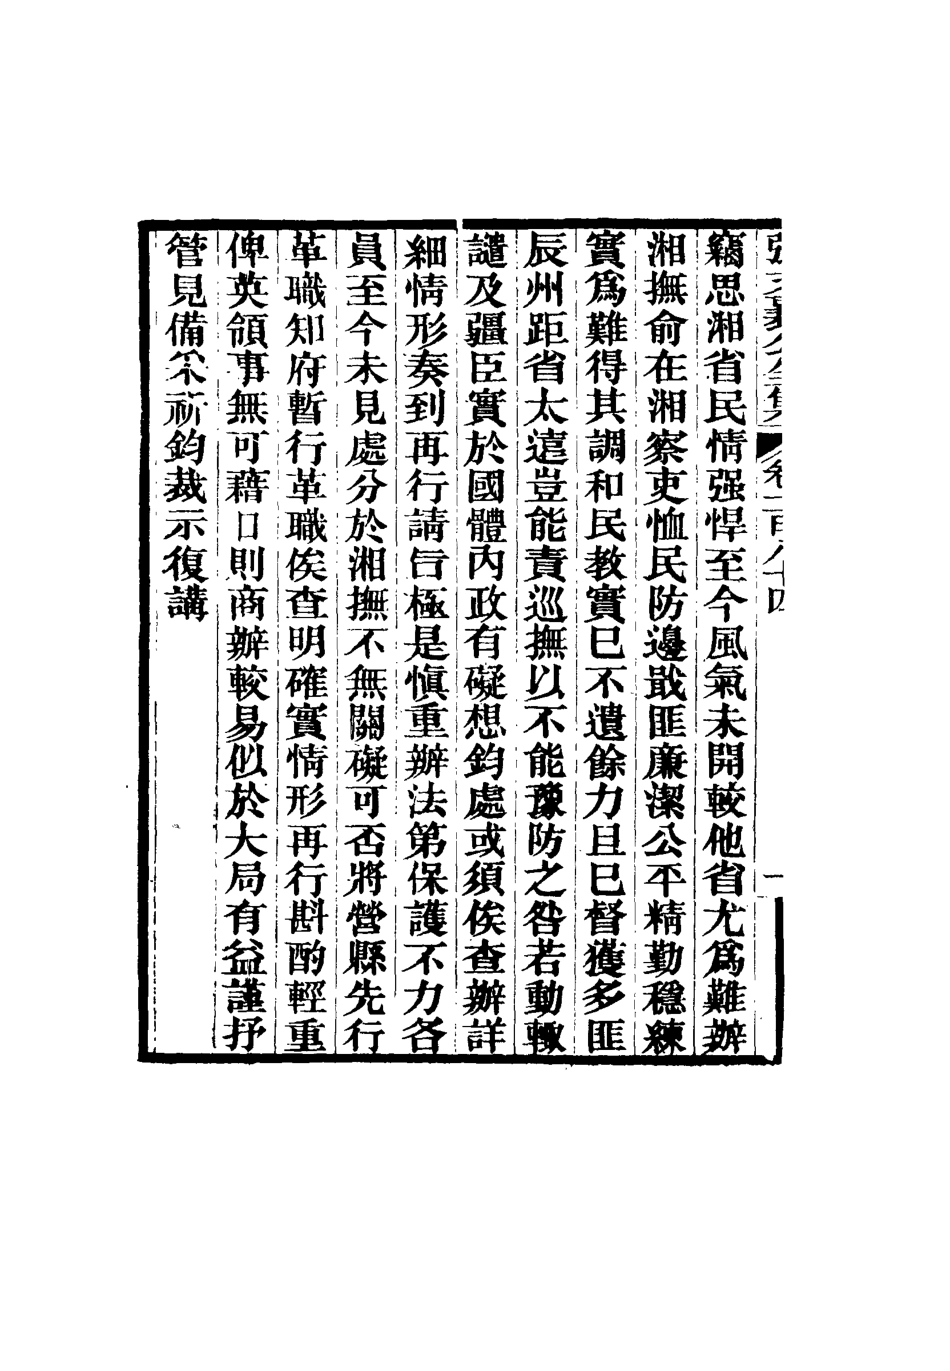 竊思湘省民情强悍至今風氣未開較他省尤爲難辦
湘撫俞在湘察吏恤民防邊戢匪廉潔公平精勤穩練
實爲難得其調和民教實已不遺餘力且已督獲多匪
辰州距省太遠豈能責巡撫以不能豫防之咎若動輒
譴及疆臣實於國體內政有礙想鈞處或須俟查辦詳
細情形奏到再行請旨極是愼重辦法第保護不力各
員至今未見處分於湘撫不無關礙可否將營縣先行
革職知府暫行革職俟查明確實情形再行斟酌輕重
俾英領事無可藉口則商辦較易似於大局有益謹抒
管見備采祈鈞裁示復講